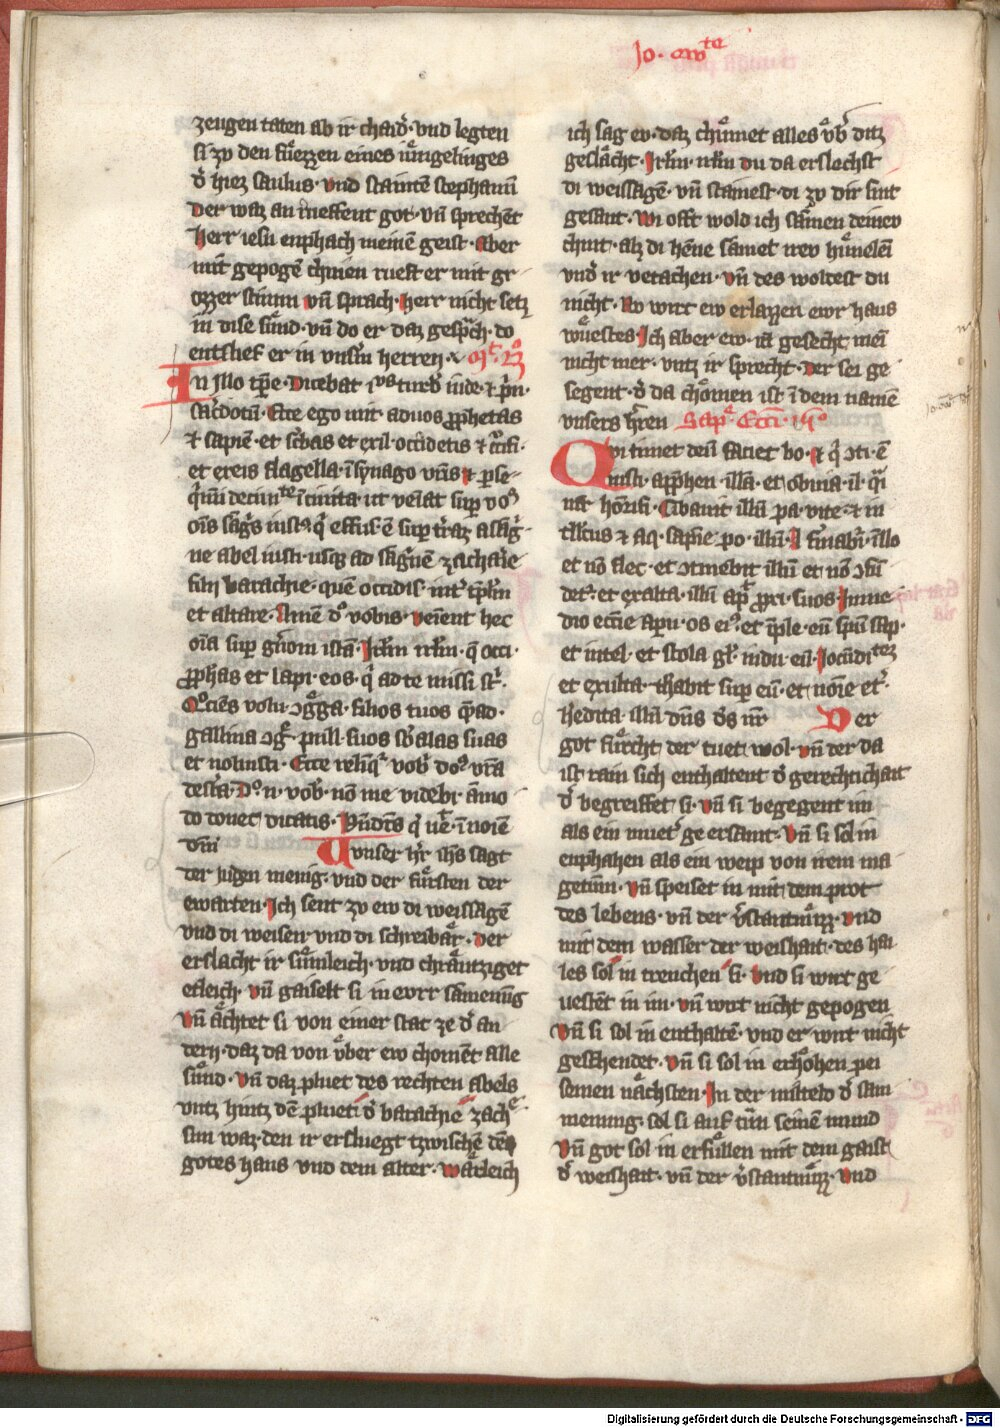 Jo. ew te
zeugen taten ab ir chaid̄ · vnd legten
si zv den fuͤezzen eines iuͤngelinges
d̄ hiez saulus · vnd stainten stephanū
Der waz an rueffent got · vn̄ sprechēt
herr iesu enphach meinē geist · Aber
mit gepogē chnien rueft er mit gr
ozzer stimm vn̄ sprach · herr nicht setz
in dise suͤnd · vn̄ do er daz gesp̄ch · do
entslief er in vnsm̄ herren ·
In illo tp̄e · Dicebat ih̄s turb̄ iude · et p̄n ·
sac̄dotū · Ecce ego mit ad uos p̄phetas
et sapien̄ · et sc̄bas et ex il · occidetis et c̄cifi ·
et ex eis flagella · ī synago vr̄is et p̄se
q̄mini de ciuite ī ciuita · ut veniat sup̄ vos
ois sāgs iustꝰ q̄ effusꝰ ē sup̄ t̄raz a sāg
ne abel iusti · usqꝫ ad sāgnē zacharie
filii barachie · quē occidis · int̄ tp̄lm
et altare · Amē dꝰ vobis · venient hec
oīa sup̄ gn̄om istā · Jrl̄m irl̄m · q̄ occi ·
p̄phas et lapi · eos · q̄ ad te missi st̄ ·
Quociēs volui ↄg̊ga · filios tuos q̄ad ·
gallina ↄg̊ · pull · suos sb̄ alas suas
et noluisti · Ecce relinq̄ vob̄ doꝰ vr̄a
deserta · Dꝰ n · vob̄ · nō me videbi · āmo
do donec dicatis · Bn̄dc̄s q̄ ue · ī noīe
dn̄i vnser hr̄r ih̄s sagt
der Juden menig · vnd der fuͤrsten der
ewarten · Ich sent zv ew di weissagē
vnd di weisen vnd di schreibaͤr · der
erslacht ir suͤmleich · vnd chraͤutziget
etleich · vn̄ gaiselt si in ewrr sāmenūg
Vn̄ aͤchtet si von einer stat ze d̄ an
dern · daz da von vͤber ew chomēt alle
suͤnd · Vn̄ daz pluet des rechten abels
vntz hintz dē pluet d̄ barachie zach
sun waz · den ir ersluegt tzwischē dē
gotes haus vnd dem alter · waͤrleich
ich sag ew · daz chuͤmet alles vͤb̄ ditz
geslaͤcht · Jrl̄m · irl̄m du da erslechst
di weissagē · vn̄ stainest · di zv dir sint
gesant · Wi offt wold ich sāmen deinev
chint · alz di henne sāmet irev huͤnelen̄
vnd̄ ir vetachen · vn̄ des woldest du
nicht · Nv wirt ew erlazzen ewr haus
wuͤestes · Ich aber ew · ir gesecht mei
nicht mer · vntz ir sprecht · Der sei ge
segent · d̄ da choͤmen ist ī dem namē
vnsers hr̄ren Sap̄ Ecc̄i
Qvi timet deū faciet bo · et q̄ ↄti · ē
iusti · app̄hen · illā · et obuia · il · q̄i
mr̄ hōrifi · Cibauit illū pa · vite · et in
tl̄lcus et aq · sapīe · po · illū · Et firmabr̄ ī illo
et nō flec · et ↄtinebit illū et nō ↄfū
det̄ · et exalta · illū ap̄ p̄xi · suos · In me
dio ecc̄ie aperi · os eiꝰ · et īple · eū spū sap ·
et intel · et stola gl̄ · indu · eū · Jocūditeꝫ
et exulta · thabit sup̄ eū · et noīe et̄ ·
hedita · illū · dn̄s d̄s nr̄ Der
got fuͤrcht der tuet wol · vn̄ der da
ist rain sich enthaltent d̄ gerechtichait
d̄ begreiffet si · vn̄ si begegent im
als ein muet̄ geersamt · Vn̄ si sol in
enphahen als ein weip von irem ma
getūm · Vn̄ speiset in mit dem prot
des lebens · vn̄ der v̄stantnuͤzz · vnd
mit dem wasser der weishait · des hai
les sol in trenchen si · Vnd si wirt ge
uestēt in im · vn̄ wirt nicht gepogen
Vn̄ si sol in enthaltē · vnd er wirt nicht
geschendet · Vn̄ si sol in erhoͤhen pei
seinen naͤchsten · In der mitteld d̄ sam
menung · sol si auf tuͤn seinē mund
Vn̄ got sol in erfuͤllen mit dem gaist
d̄ weishait · vn̄ der v̄stantnuͤzz · Vnd
Digitalisierung gefördert durch die Deutsche Forschungsgemeinschaft - DFG